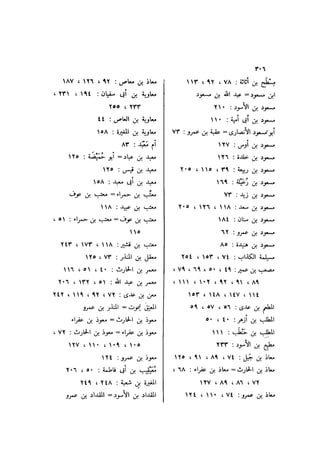 ٣٠٦
مِسْطَح بن أُثَاثَة : ٧٨ ، ٩٢ ، ١١٣
ابن مسعود = عبد الله بن مسعود
مسعود بن الأسود : ٢١٠
مسعود بن أبى أمية : ١١٠
أبو مسعود الأنصارى = عقبة بن عمرو : ٧٣
مسعود بن أوس : ١٢٧
مسعود بن خلدة : ١٢٦
مسعود بن ربيعة : ٣٩ ، ١١٥ ، ٢٠٥
مسعود بن رُخَيْلة : ١٦٩
مسعود بن زيد : ٧٣
مسعود بن سعد : ١١٨ ، ١٢٦ ، ٢٠٥
مسعود بن سنان : ١٨٤
مسعود بن عمرو : ٦٢
مسعود بن هنيدة : ٨٥
مسيلمة الكذاب : ٧٤ ، ١٥٣ ، ٢٥٤
مصعب بن عمير : ٤٩ ، ٥٠ ، ٦٩ ، ٧٩ ،
٨٩ ، ٩١ ، ٩٢ ، ١٠٢ ، ١١١ ،
١١٤ ، ١٤٧ ، ١٤٨ ، ١٥٣
المطعم بن عدى : ٥٦ ، ٥٧ ، ٥٩
المطلب بن أزهر : ٤٠ ، ٥٠
المطلب بن حَنْطَب : ١١١
مطيع بن الأسود : ٢٣٣
معاذ بن جَبَل : ٧٤ ، ٨٩ ، ٩١ ، ١٢٥
معاذ بن الحارث = معاذ بن عفراء : ٦٨ ،
٧٢ ، ٨٦ ، ٨٩ ، ١٢٧
معاذ بن عمرو : ٧٤ ، ١١٠ ، ١٢٤
معاذ بن معاص : ٩٢ ، ١٢٦ ، ١٨٧
معاوية بن أبى سفيان : ١٩٤ ، ٢٣١ ،
٢٣٣ ، ٢٥٥
معاوية بن العاص : ٤٤
معاوية بن المغيرة : ١٥٨
أم مَعْبَد : ٨٣
معبد بن عباد = أبو حُمَيْضَة : ١٢٥
معبد بن قيس : ١٢٥
معبد بن أبى معبد : ١٥٨
معتِّب بن حمراء = معتب بن عوف
معتب بن عبيد : ١١٨
معتب بن عوف = معتب بن حمراء : ٥١ ،
١١٥
معتب بن قشير : ١١٨ ، ١٧٣ ، ٢٤٣
معقل بن المنذر : ٧٣ ، ١٢٥
معمر بن الحارث : ٤٠ ، ٥١ ، ١١٦
معمر بن عبد الله : ٥١ ، ١٣٢ ، ٢٠٦
معن بن عدى : ٧٢ ، ٩٢ ، ١١٩ ، ٢٤٢
المعنِق ليموت = المنذر بن عمرو
معوذ بن الحارث = معوذ بن عفراء
معوذ بن عفراء = معوذ بن الحارث : ٧٢ ،
١٠٥ ، ١٠٩ ، ١١٠ ، ١٢٧
معوذ بن عمرو : ١٢٤
مُعَيْقِيب بن أبى فاطمة : ٥٠ ، ٢٠٦
المغيرة بن شعبة : ٢٤٨ ، ٢٤٩
المقداد بن الأسود = المقداد بن عمرو